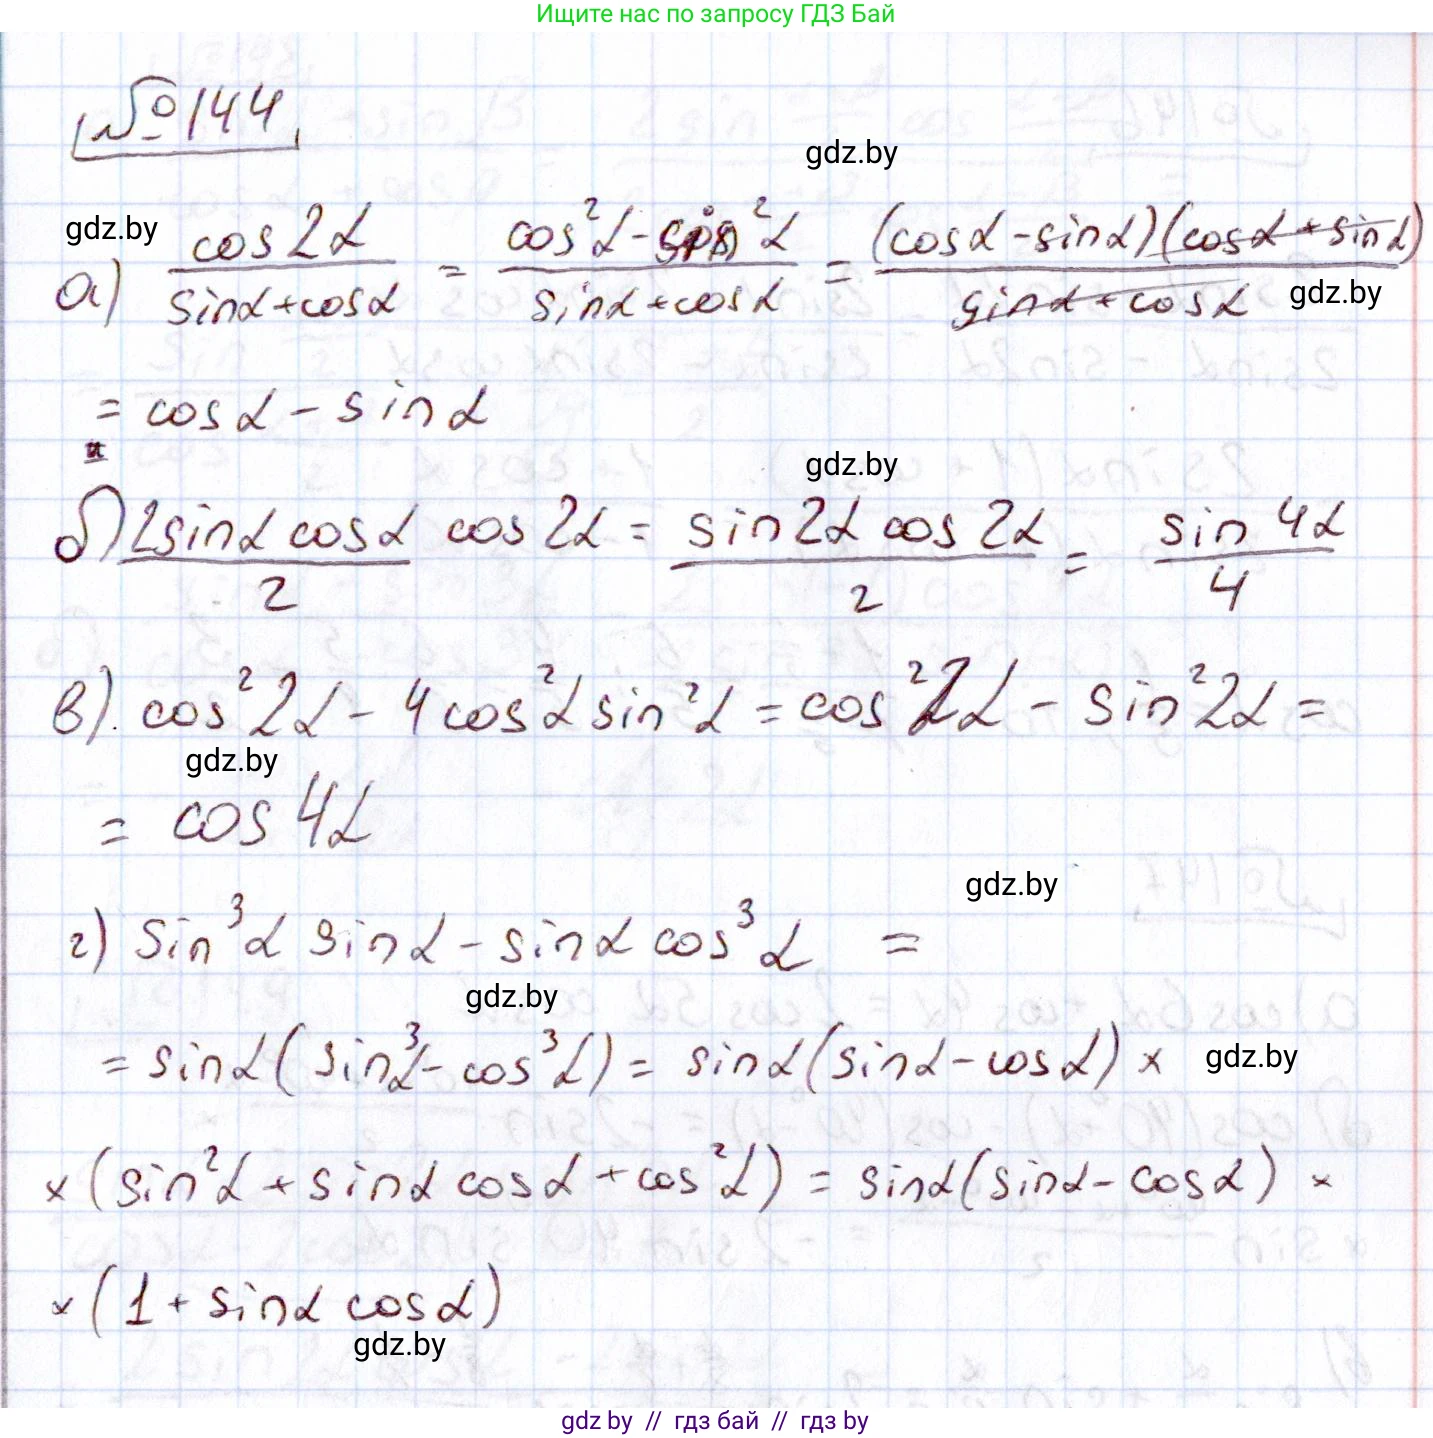 Ищите нас по запросу ГДЗ Бай
№144
gdz.by
gdz.by
а) cos2α / sinα+cosα = cos²α-sin²α / sinα+cosα = (cosα-sinα)(cosα+sinα) / sinα+cosα
gdz.by
= cosα - sinα
gdz.by
б) 2sinα cosα / 2 cos2α = sin2α cos2α / 2 = sin4α / 4
в). cos²2α - 4cos²α sin²α = cos²2α - sin²2α =
gdz.by
= cos4α
gdz.by
г) sin³α sinα - sinα cos³α =
gdz.by
= sinα(sin³α - cos³α) = sinα(sinα - cosα) ×
gdz.by
× (sin²α + sinα cosα + cos²α) = sinα(sinα - cosα) ×
× (1 + sinα cosα)
gdz.by
gdz by // гдз бай // гдз by